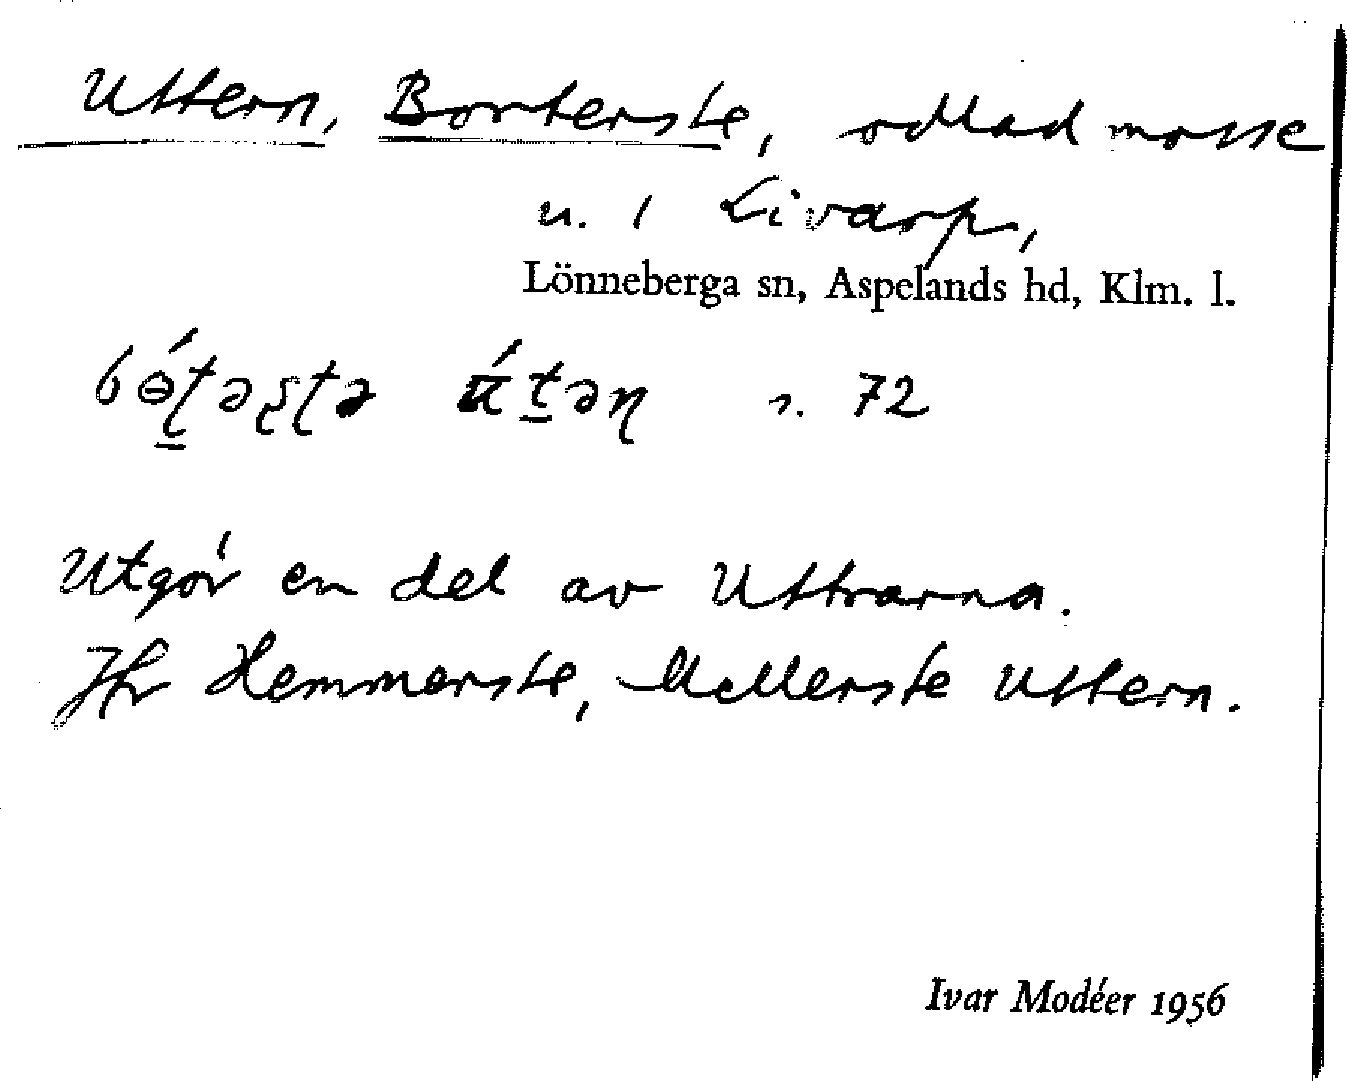 Uttern, Borterste, odlad mosse
u. 1 Livarp,
Lönneberga sn, Aspelands hd, Klm. l.
s. 72
Utgör en del av Uttrarna.
Jfr Hemmerste, Mellerste Uttern.
Ivar Modéer 1956